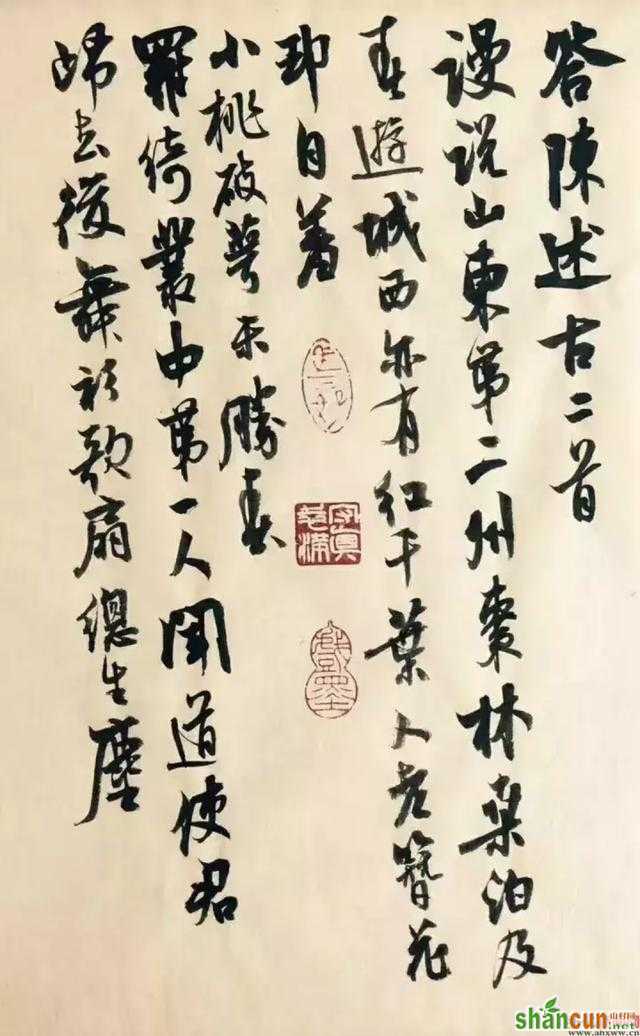 答陳述古二首
谩说山東第二州棗林桑泊负
春遊城西亦有红千葉人老簪花
却自羞
小桃破萼未勝春
羅綺叢中第一人聞道使君
歸去後舞衫歌扇總生塵
shancun
山村网
.net
www.ahxww.cn